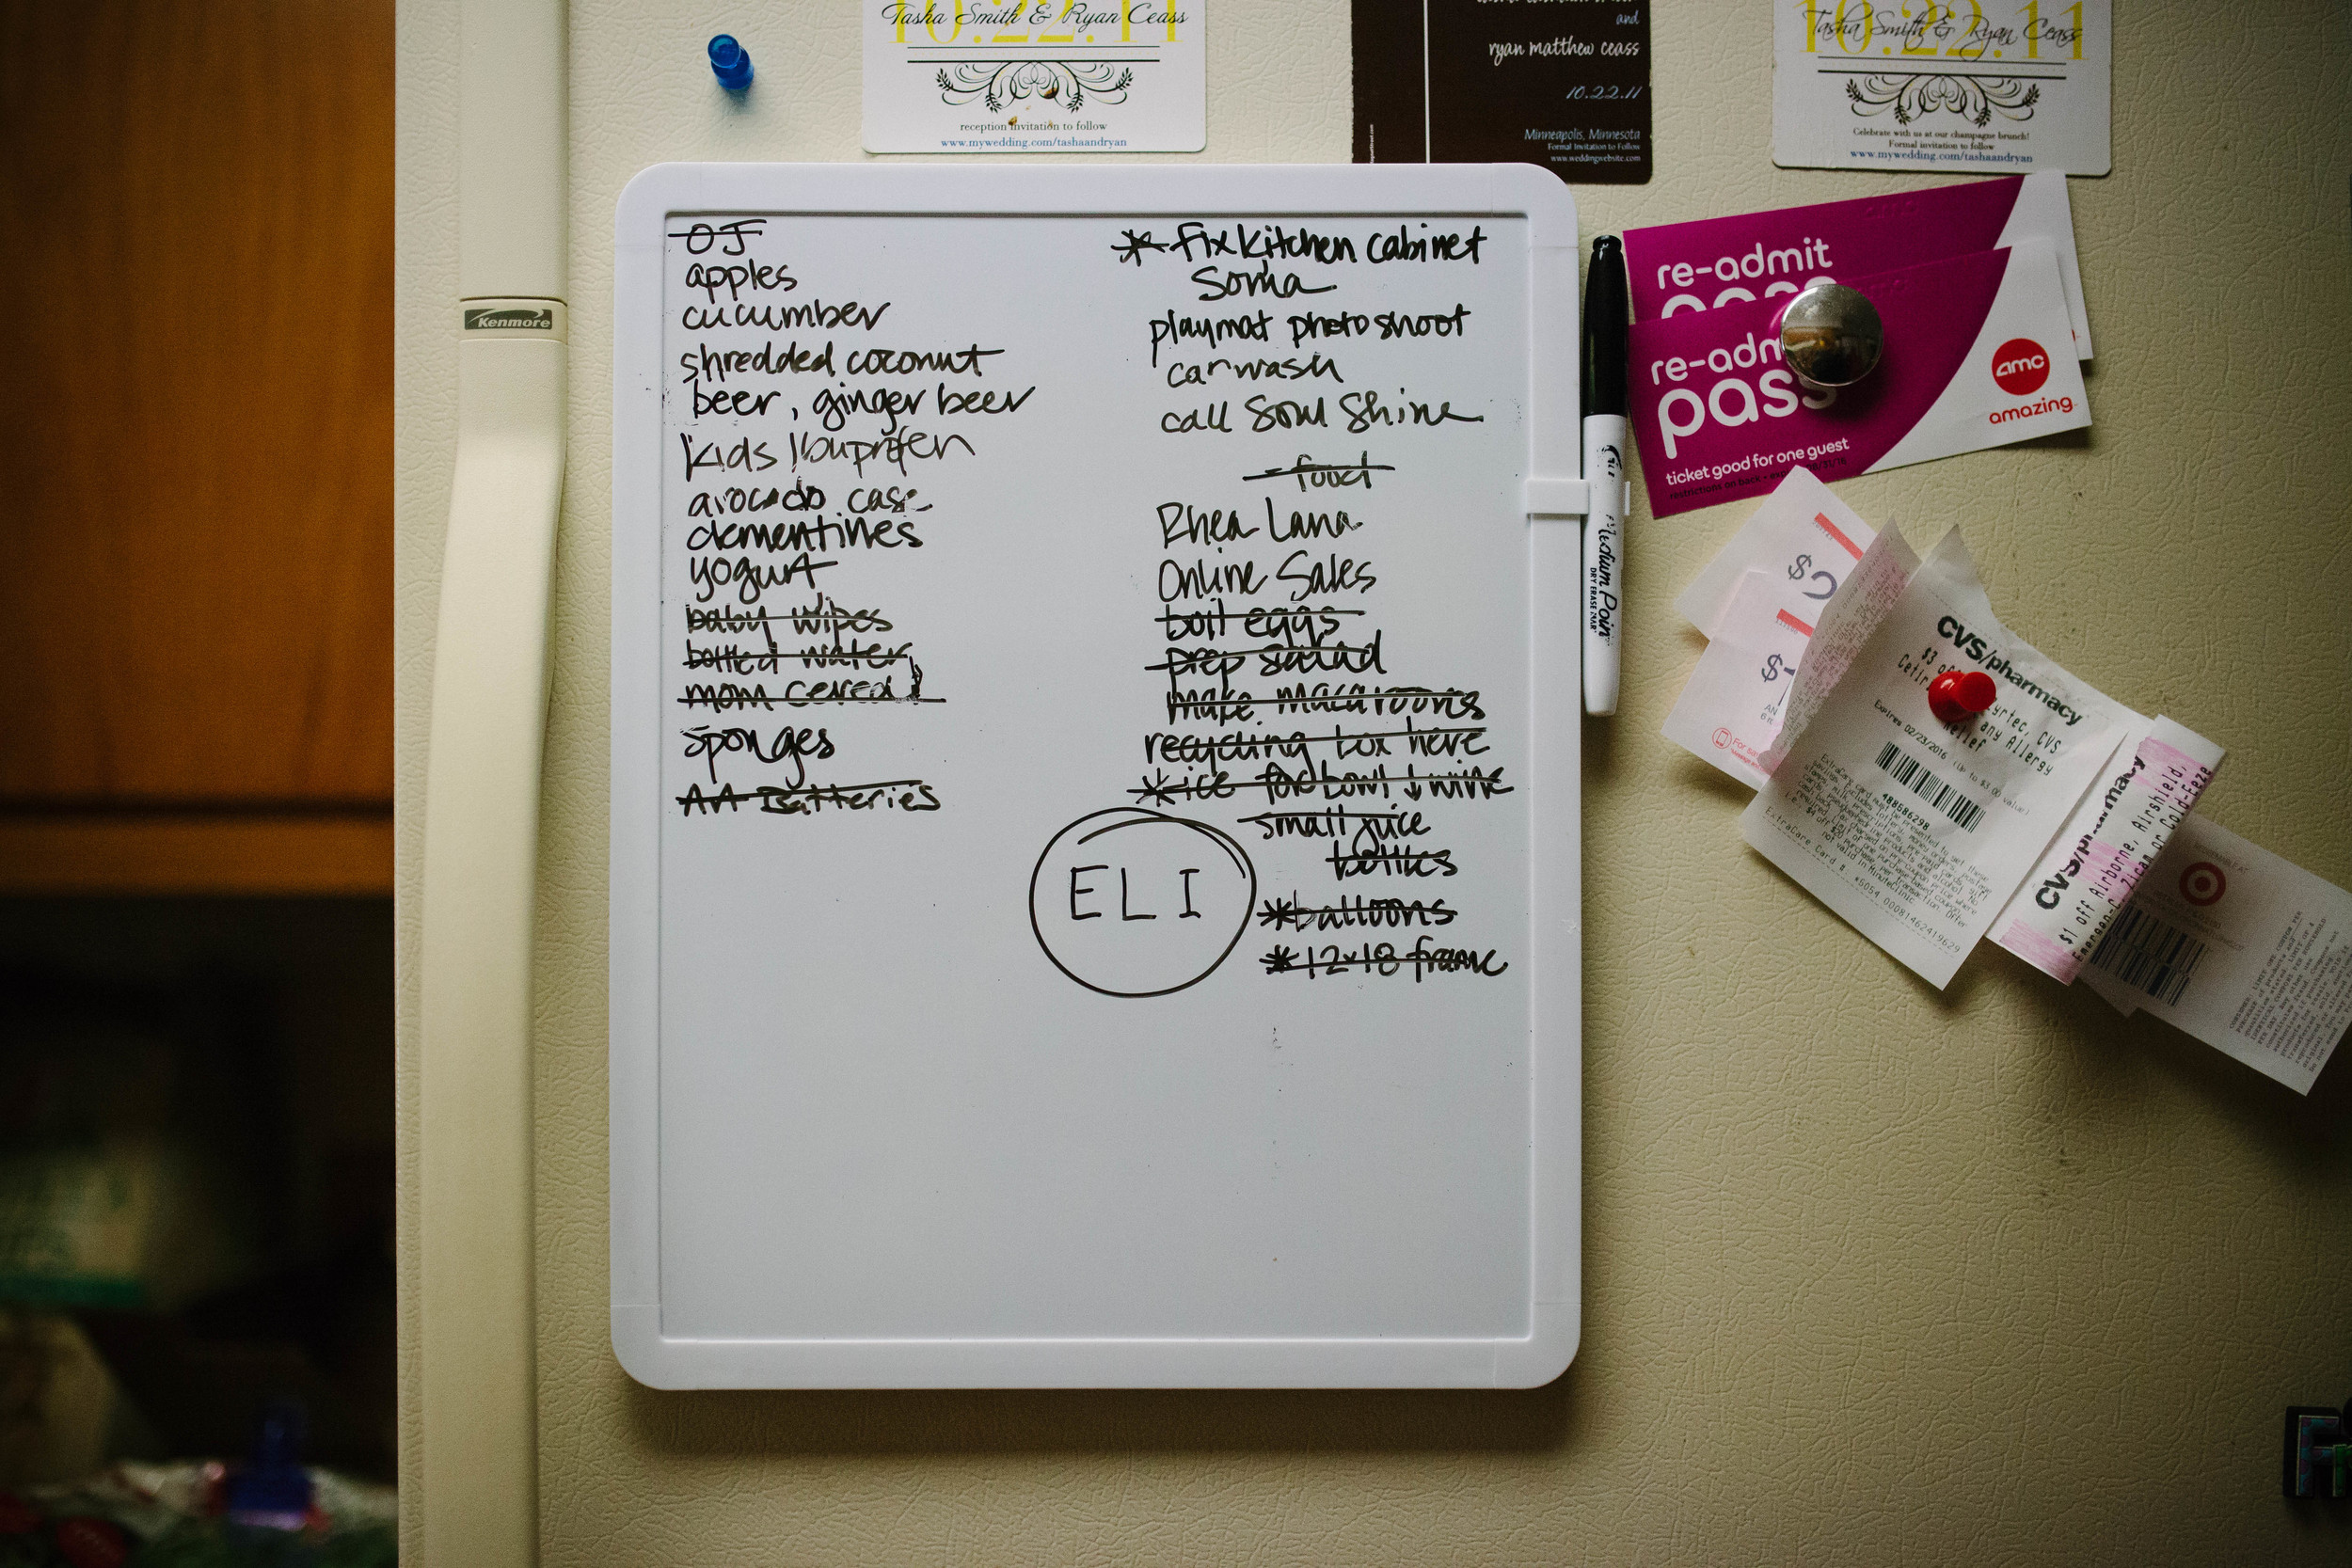 Tasha Smith & Ryan Ceass
10.22.11
reception invitation to follow
www.mywedding.com/tashaandryan
and
ryan matthew ceass
10.22.11
Minneapolis, Minnesota
Formal Invitation to Follow
www.weddingwebsite.com
Tasha Smith & Ryan Ceass
10.22.11
Celebrate with us at our champagne brunch!
Formal invitation to follow
www.mywedding.com/tashaandryan
Kenmore
OJ
apples
cucumber
shredded coconut
beer, ginger beer
kids Ibuprofen
avocado case
clementines
yogurt
baby wipes
bottled water
mom cereal
sponges
AA Batteries
* fix kitchen cabinet
Soma
playmat photo shoot
carwash
call Soul Shine
- food
Rhea Lana
Online Sales
boil eggs
prep salad
make macaroons
recycling box here
* ice for bowl & wine
small juice
bottles
* balloons
* 12x18 frame
ELI
Medium Point
DRY ERASE
re-admit
re-adm
pass
ticket good for one guest
restrictions on back
amc
amazing
CVS/pharmacy
$3 off
any Allergy
Relief
Expires 02/23/2016 (Up to $3.00 value)
488586298
ExtraCare Card # *5054
0008146241962​9
CVS/pharmacy
$1 off Airborne, Airshield,
Emergen-C, Zicam or Cold-Eeze